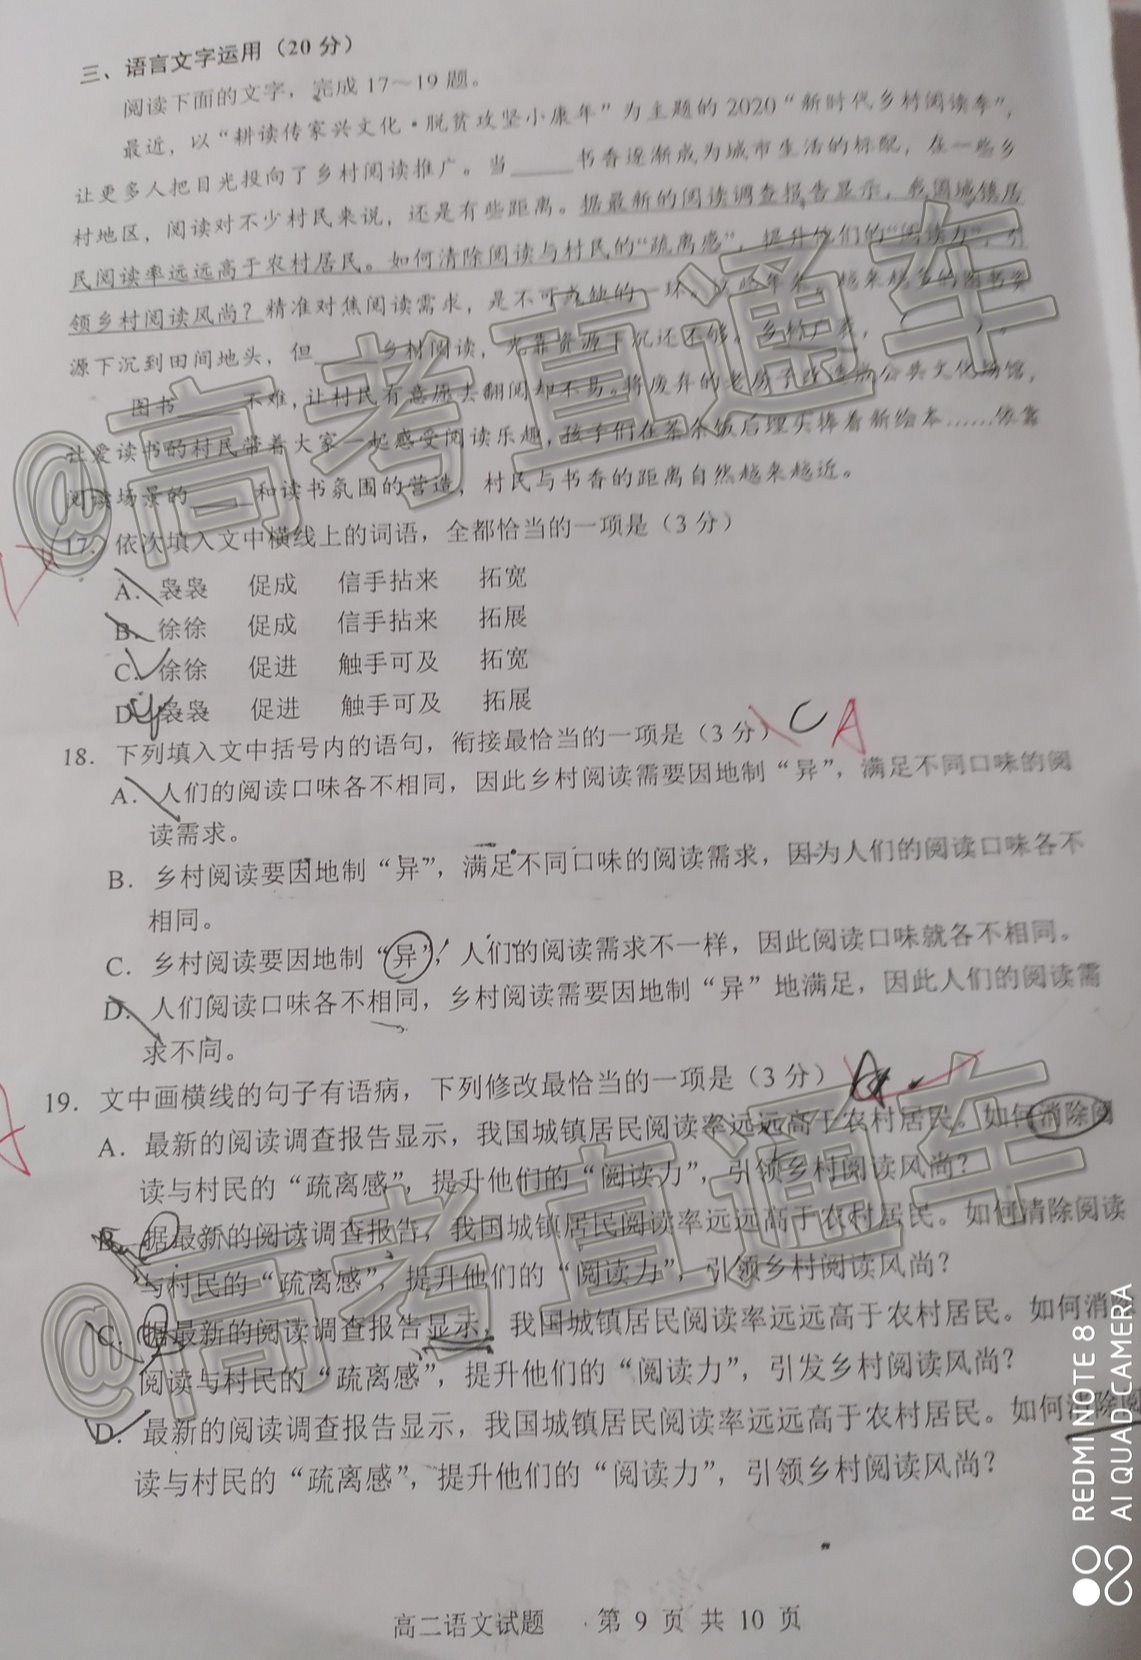 三、语言文字运用（20分）
阅读下面的文字，完成17～19题。
最近，以“耕读传家兴文化·脱贫攻坚小康年”为主题的2020“新时代乡村阅读季”，
让更多人把目光投向了乡村阅读推广。当_____书香逐渐成为城市生活的标配，在一些乡
村地区，阅读对不少村民来说，还是有些距离。据最新的阅读调查报告显示，我国城镇居
民阅读率远远高于农村居民。如何清除阅读与村民的“疏离感”，提升他们的“阅读力”，引
领乡村阅读风尚？精准对焦阅读需求，是不可或缺的一环。这些年来，越来越多的图书资
源下沉到田间地头，但_____乡村阅读，光靠资源下沉还不够。乡村广袤，（ ）。
图书_____不难，让村民有意愿去翻阅却不易。将废弃的老房子改造成公共文化场馆，
让爱读书的村民带着大家一起感受阅读乐趣，孩子们在茶余饭后埋头捧着新绘本……依靠
阅读场景的_____和读书氛围的营造，村民与书香的距离自然越来越近。
17．依次填入文中横线上的词语，全都恰当的一项是（3分）
A．袅袅 促成 信手拈来 拓宽
B．徐徐 促成 信手拈来 拓展
C．徐徐 促进 触手可及 拓宽
D．袅袅 促进 触手可及 拓展
18．下列填入文中括号内的语句，衔接最恰当的一项是（3分） C A
A．人们的阅读口味各不相同，因此乡村阅读需要因地制“异”，满足不同口味的阅
读需求。
B．乡村阅读要因地制“异”，满足不同口味的阅读需求，因为人们的阅读口味各不
相同。
C．乡村阅读要因地制“异”，人们的阅读需求不一样，因此阅读口味就各不相同。
D．人们阅读口味各不相同，乡村阅读需要因地制“异”地满足，因此人们的阅读需
求不同。
19．文中画横线的句子有语病，下列修改最恰当的一项是（3分）
A．最新的阅读调查报告显示，我国城镇居民阅读率远远高于农村居民。如何消除阅
读与村民的“疏离感”，提升他们的“阅读力”，引领乡村阅读风尚？
B．据最新的阅读调查报告，我国城镇居民阅读率远远高于农村居民。如何清除阅读
与村民的“疏离感”，提升他们的“阅读力”，引领乡村阅读风尚？
C．据最新的阅读调查报告显示，我国城镇居民阅读率远远高于农村居民。如何消除
阅读与村民的“疏离感”，提升他们的“阅读力”，引发乡村阅读风尚？
D．最新的阅读调查报告显示，我国城镇居民阅读率远远高于农村居民。如何清除阅
读与村民的“疏离感”，提升他们的“阅读力”，引领乡村阅读风尚？
高二语文试题 第 9 页 共 10 页
@高考直通车
@高考直通车
REDMI NOTE 8
AI QUAD CAMERA